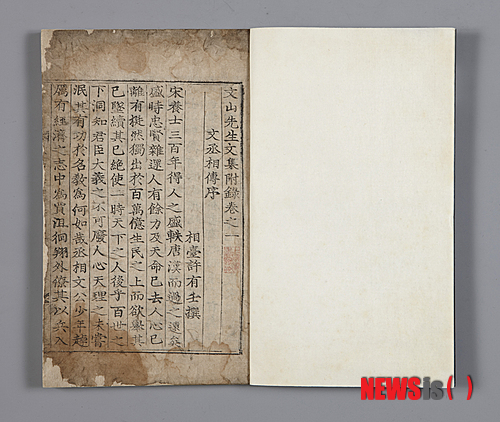 文山先生文集附錄卷之一
文丞相傳序
相臺許有壬撰
宋養士三百年得人之盛軼唐漢而過之遠矣
盛時忠賢雜遝人有餘力及天命已去人心已
離有挺然獨出於百萬億生民之上而欲舉其
已墜續其已絶使一時天下之人後乎百世之
下洞知君臣大義之不可廢人心天理之未嘗
泯其有功於名敎為何如哉丞相文公少年趠
厲有經濟之志中為賈沮徊翔外僚其以兵入
NEWSis( )